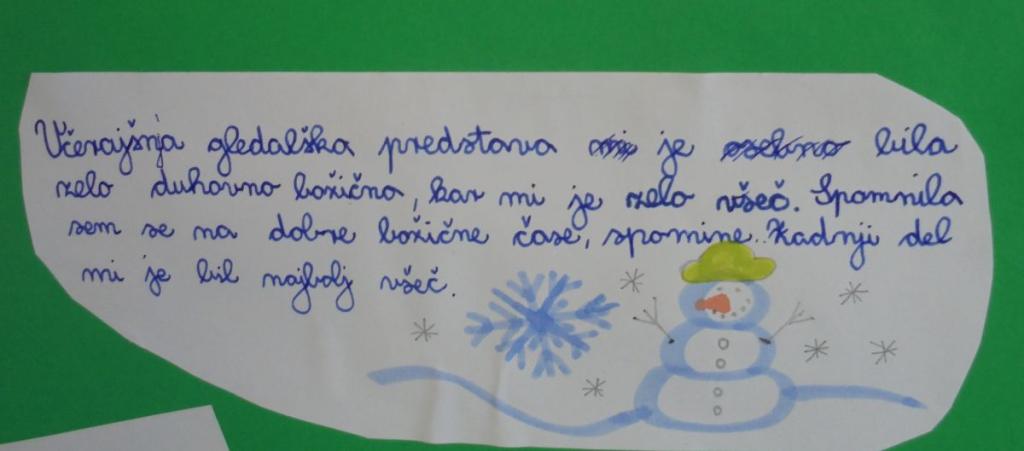 Včerajšnja gledališka predstava je bila
zelo duhovno božična, kar mi je zelo všeč. Spomnila
sem se na dobre božične čase, spomine... Zadnji del
mi je bil najbolj všeč.